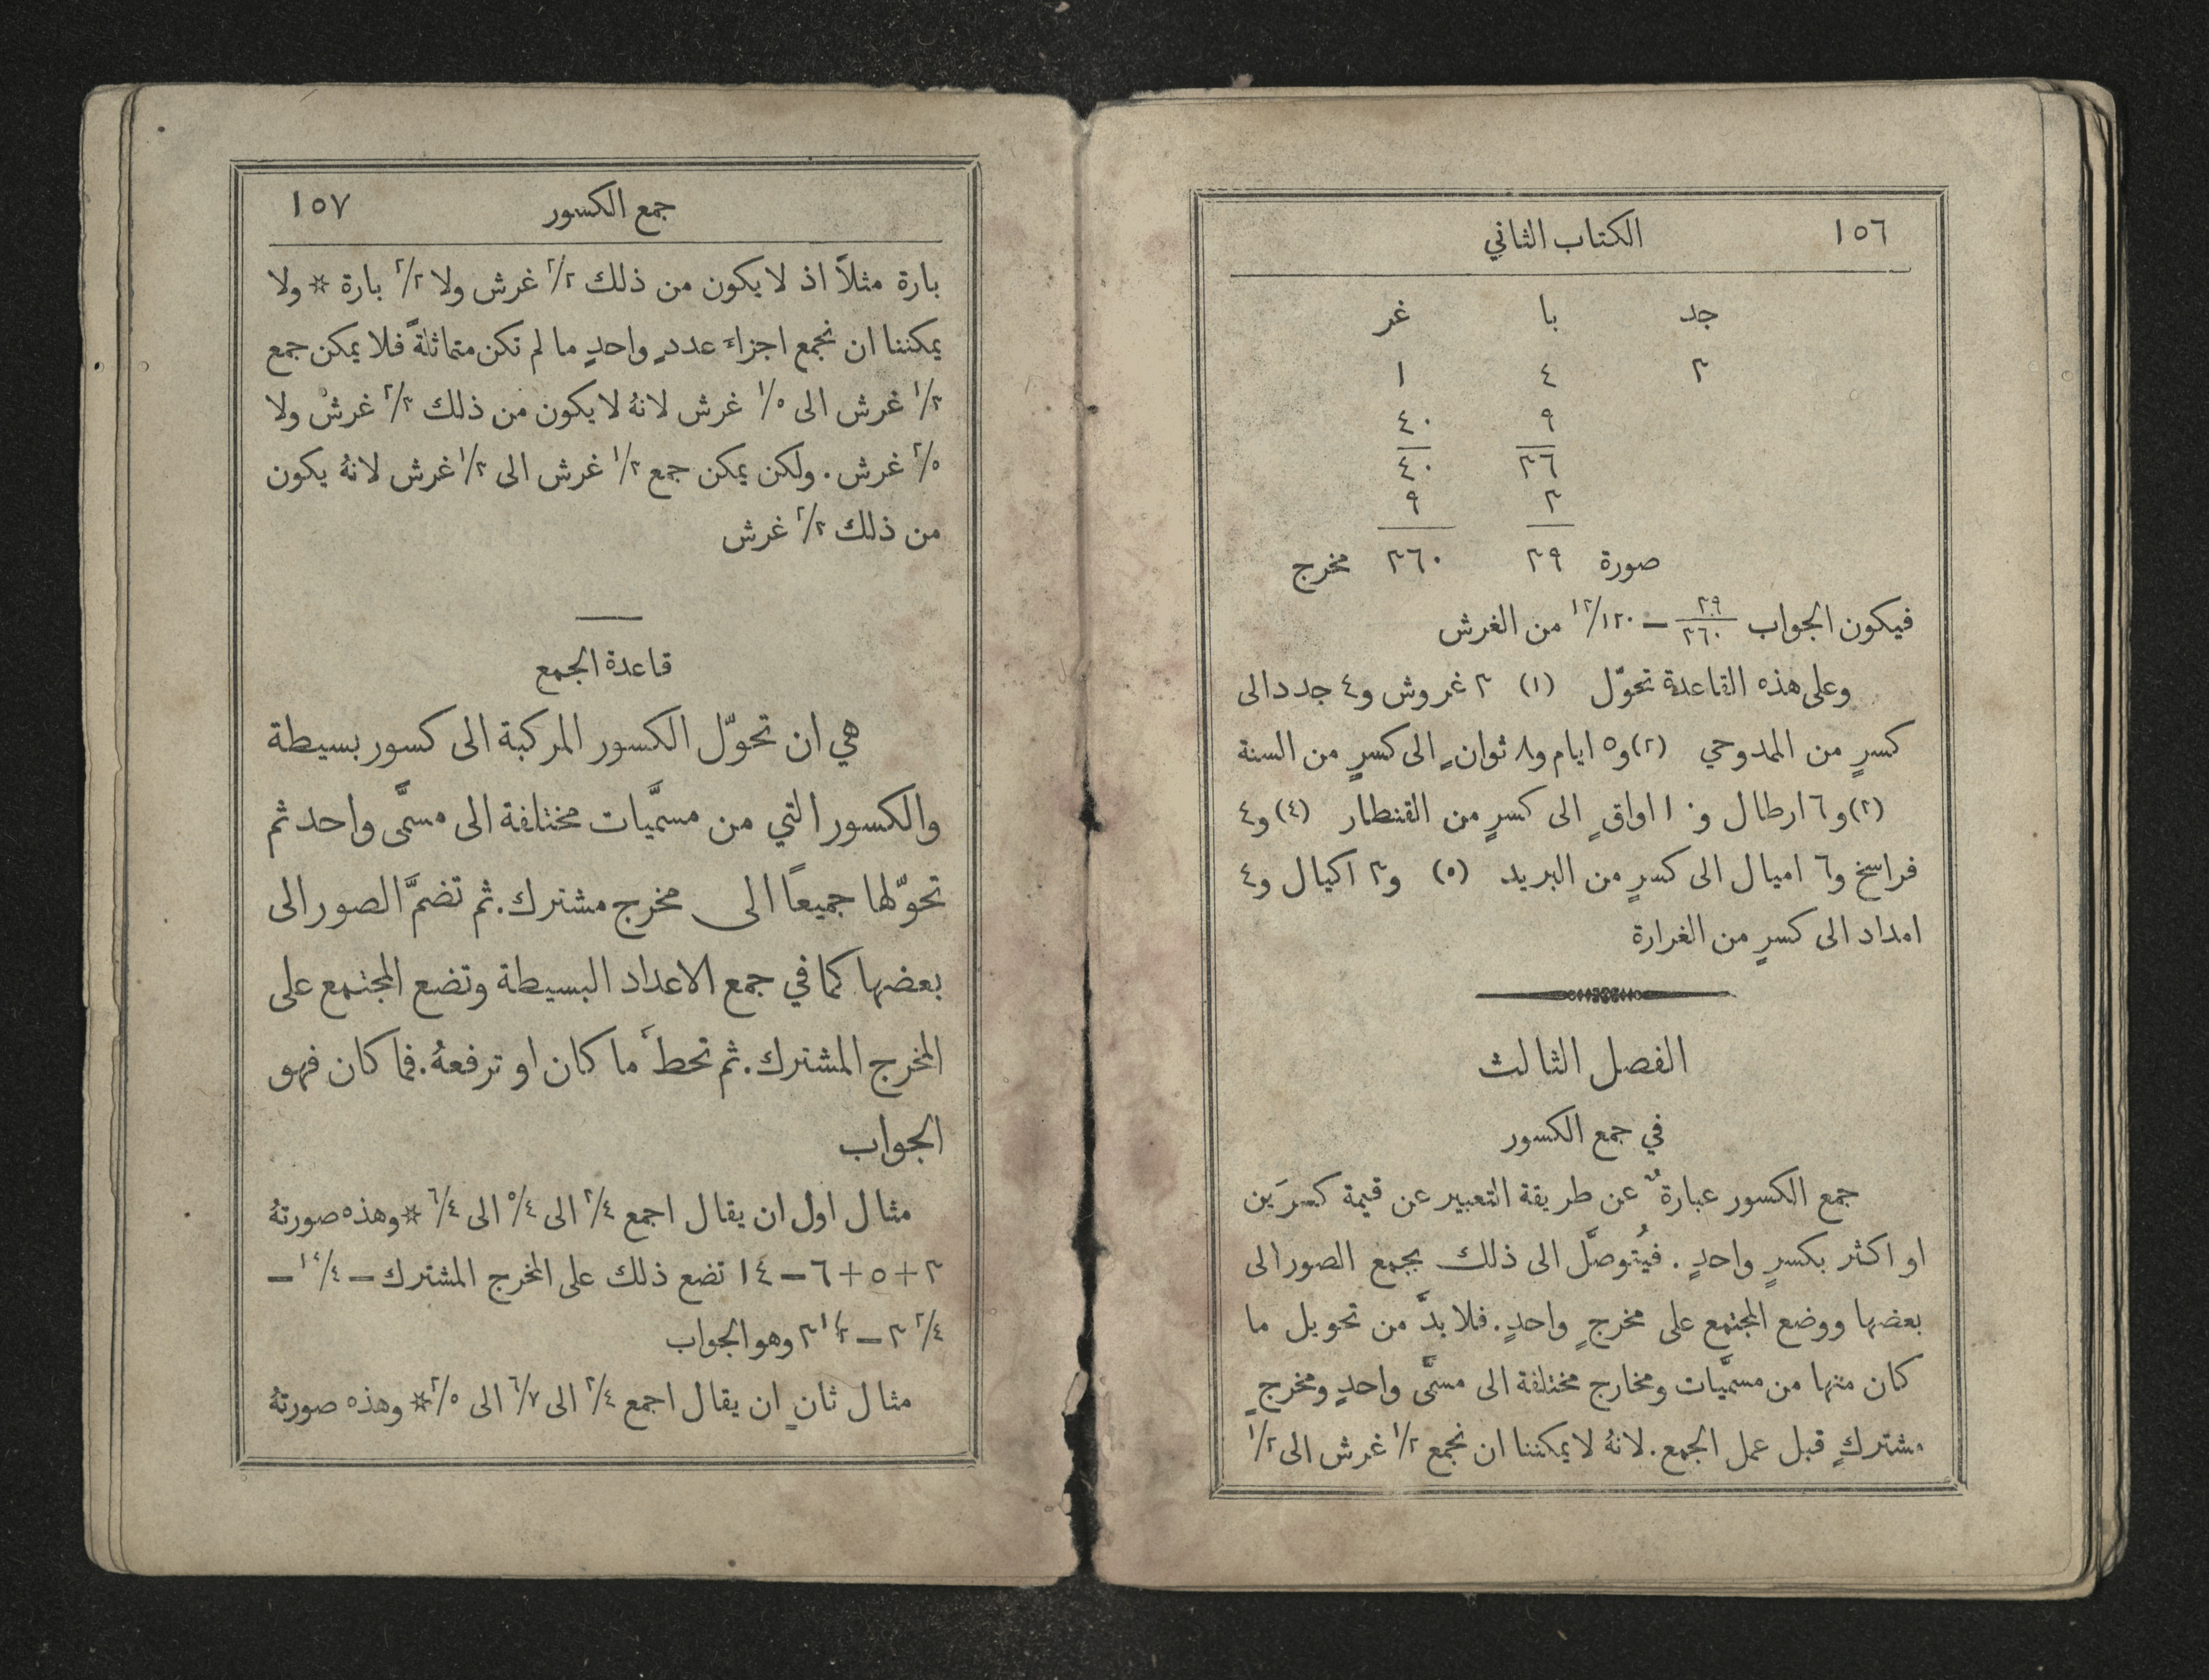 ١٥٦ الكتاب الثاني
جد با غر
٣ ٤ ١
٩ ٤٠
٣٦ ٤٠
٣ ٩
صورة ٣٩ ٣٦٠ مخرج
فيكون الجواب ٣٩/٣٦٠ — ١٣/١٢٠ من الغرش
وعلى هذه القاعدة تحوّل (١) ٣ غروش و٤ جدد الى
كسرٍ من الممدوحي (٢) و٥ ايام و٨ ثوانٍ الى كسرٍ من السنة
(٣) و٦ ارطال و١٠ اواقٍ الى كسرٍ من القنطار (٤) و٤
فراسخ و٦ اميال الى كسرٍ من البريد (٥) و٣ اكيال و٤
امداد الى كسرٍ من الغرارة
الفصل الثالث
في جمع الكسور
جمع الكسور عبارةٌ عن طريقة التعبير عن قيمة كسرَين
او اكثر بكسرٍ واحدٍ. فيُتوصَّل الى ذلك بجمع الصور الى
بعضها ووضع المجتمع على مخرجٍ واحدٍ. فلا بدَّ من تحويل ما
كان منها من مسمَّيات ومخارج مختلفة الى مسمَّى واحدٍ ومخرجٍ
مشتركٍ قبل عمل الجمع. لانهُ لا يمكننا ان نجمع ١/٢ غرش الى ١/٢
جمع الكسور ١٥٧
بارة مثلاً اذ لا يكون من ذلك ٢/٢ غرش ولا ٢/٢ بارة * ولا
يمكننا ان نجمع اجزاءَ عددٍ واحدٍ ما لم تكن متماثلةً فلا يمكن جمع
١/٣ غرش الى ١/٥ غرش لانهُ لا يكون من ذلك ٢/٣ غرش ولا
٢/٥ غرش. ولكن يمكن جمع ١/٣ غرش الى ١/٣ غرش لانهُ يكون
من ذلك ٢/٣ غرش
قاعدة الجمع
هي ان تحوّل الكسور المركبة الى كسور بسيطة
والكسور التي من مسمَّيات مختلفة الى مسمَّى واحد ثم
تحوّلها جميعًا الى مخرج مشترك. ثم تضمَّ الصور الى
بعضها كما في جمع الاعداد البسيطة وتضع المجتمع على
المخرج المشترك. ثم تحطَ ما كان او ترفعهُ. فما كان فهو
الجواب
مثال اول ان يقال اجمع ٣/٤ الى ٥/٤ الى ٦/٤ * وهذه صورتهُ
٣ + ٥ + ٦ — ١٤ تضع ذلك على المخرج المشترك — ١٤/٤ —
٣ ٢/٤ — ٣ ١/٢ وهو الجواب
مثال ثانٍ ان يقال اجمع ٣/٤ الى ٦/٧ الى ٢/٥ * وهذه صورتهُ